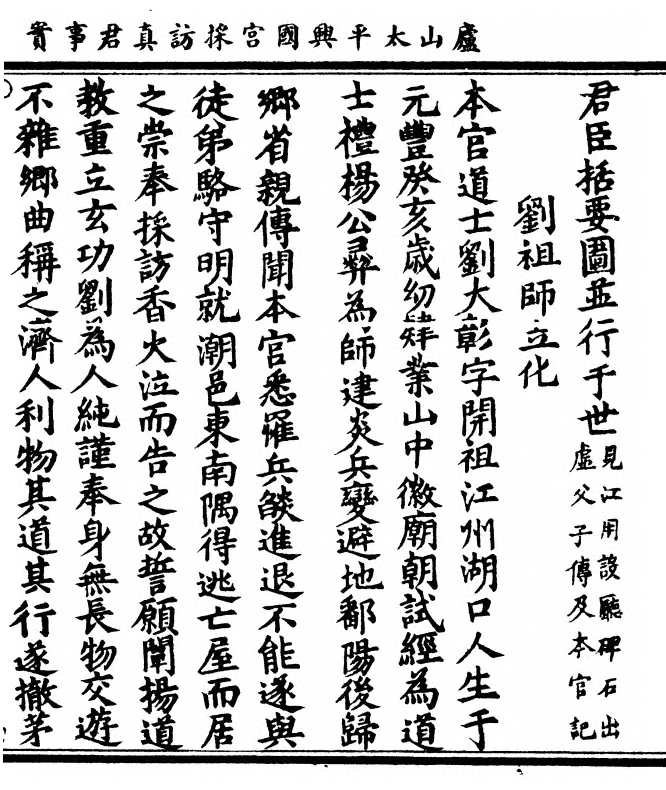 廬山太平興國宮採訪真君事實
君臣括要圖並行于世見江用設廳碑石出
虛父子傳及本官記
劉祖師立化
本官道士劉大彰字開祖江州湖口人生于
元豐癸亥歲幼肄業山中徽廟朝試經為道
士禮楊公彛為師建炎兵變避地鄱陽後歸
鄉省親傳聞本官悉罹兵燄進退不能遂與
徒弟駱守明就潮邑東南隅得逃亡屋而居
之崇奉採訪香火泣而告之故誓願闡揚道
教重立玄功劉為人純謹奉身無長物交遊
不雜鄉曲稱之濟人利物其道其行遂撤茅